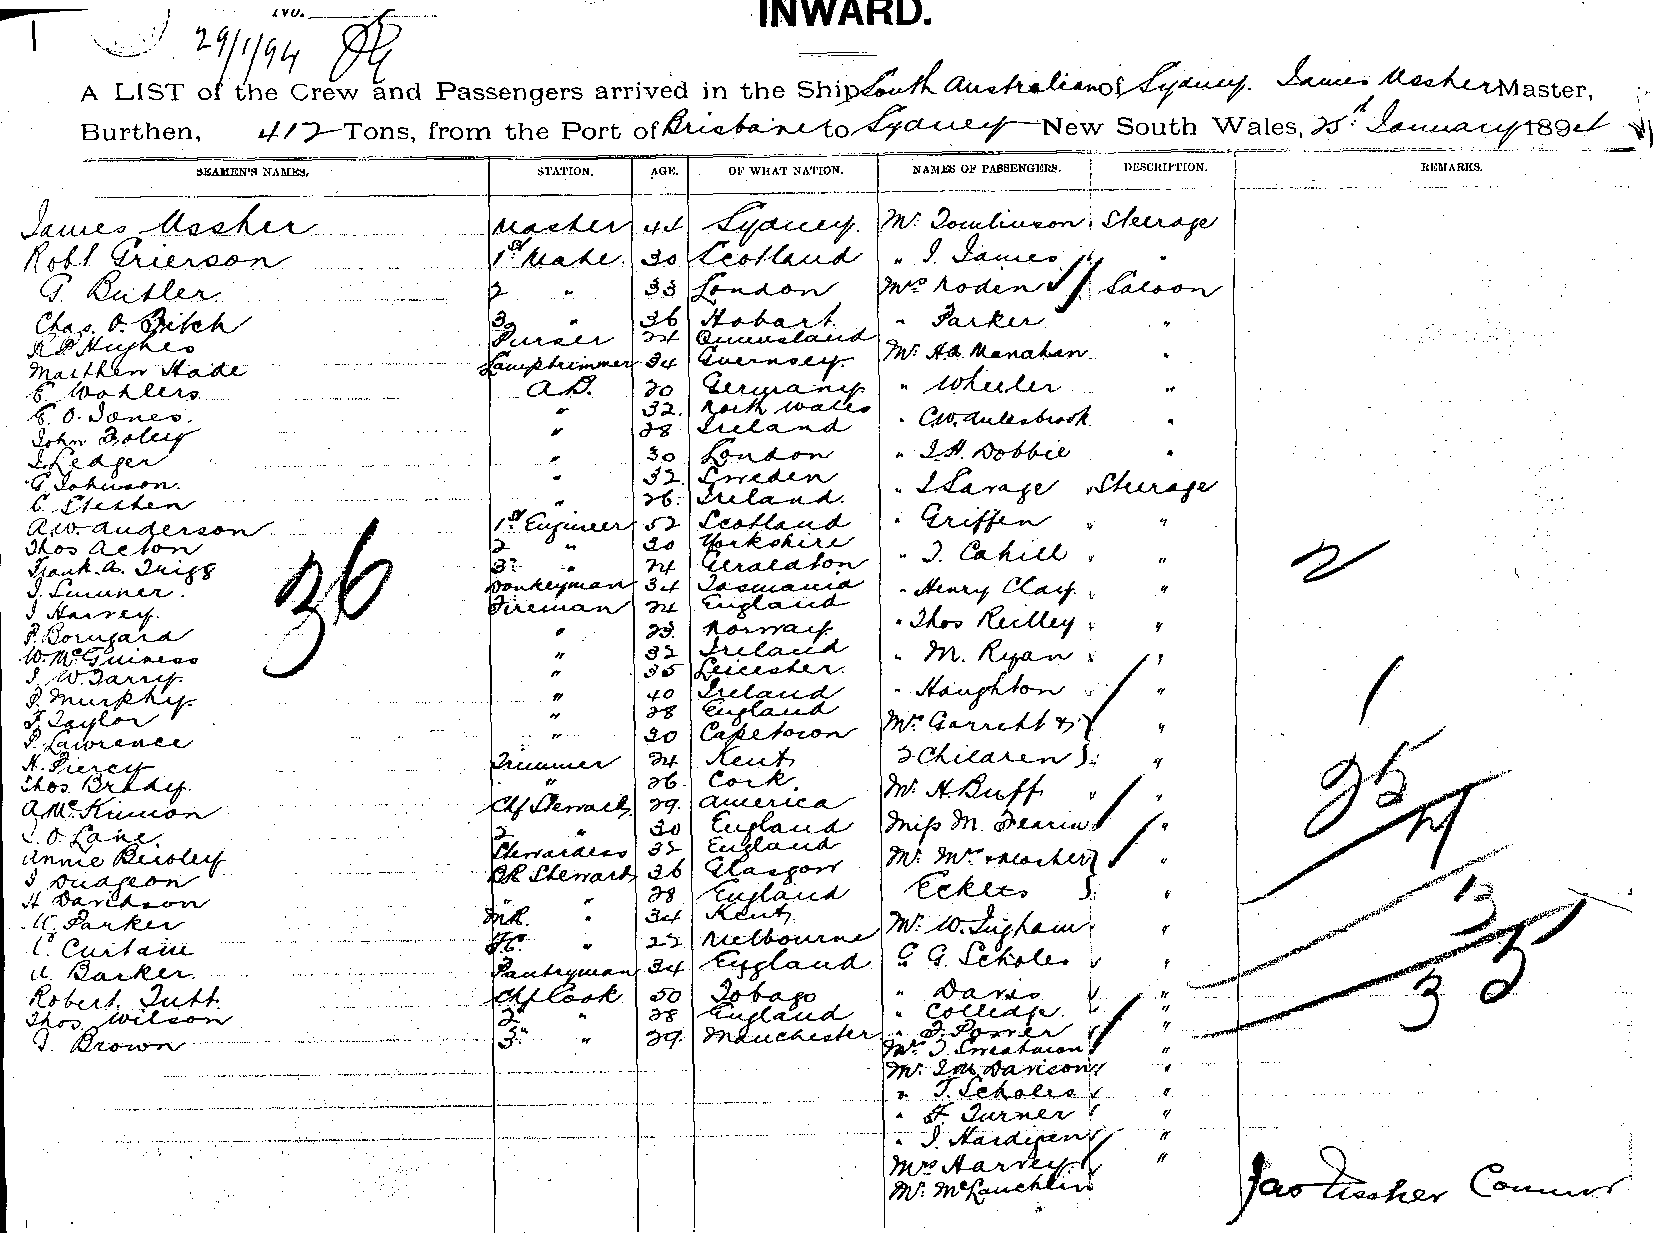 No.
INWARD.
29/1/94
A LIST of the Crew and Passengers arrived in the Ship South Australian of Sydney. James Ussher Master,
Burthen, 412 Tons, from the Port of Brisbane to Sydney New South Wales, 25th January 1894
SEAMEN'S NAMES. STATION. AGE. OF WHAT NATION. NAMES OF PASSENGERS. DESCRIPTION. REMARKS.
James Ussher Master 44 Sydney. Mr. Tomlinson Steerage
Robt Grierson 1st Mate. 30 Scotland " J. James "
G. Butler 2 " 33 London Mrs Roden Saloon
Chas. O. Fitch 3 " 36 Hobart " Parker "
R P Hughes Purser 24 Queensland
Matthew Hade Lamptrimmer 34 Guernsey. Mr. Monahan "
E Wahlers A.B. 20 Germany " Wheeler "
E. O. Jones. " 32. North Wales
John Foley " 28 Ireland " "
J Ledger " 30 London " J.H. Dobbie "
G Johnson. " 32 Sweden " J Savage Steerage
C Stephen " 26. Ireland.
A.W. Anderson 1st Engineer 52 Scotland " Griffen "
Thos Acton 2 " 30 Yorkshire
Frank A. Trigg 3 " 24 Geraldton " J. Cahill "
J. Sumner. Donkeyman 34 Tasmania " Henry Clay "
J Harvey. Fireman 24 England
P. Borugard " 23. Norway " Thos Reilley "
W. McGuiness " 32 Ireland " M. Ryan "
J W Tarry. " 35 Leicester.
P. Murphy. " 40 Ireland " Houghton "
F Taylor " 28 England
P. Lawrence " 30 Capetown Mrs Garrett & "
H. Piercy Trimmer 24 Kent 2 Children "
Thos. Brady. " 26 Cork.
A McKinnon Chf Steward 29. America Mr. H. Buff "
J. O. Lane. 2 " 30 England Miss M. "
Annie Beisley Stewardess 32 England
J Dudgeon BR Steward 36 Glasgow Mr. Mrs "
H Davidson " " 28 England Eckers "
W. Parker MR. " 34 Kent
C Curtain FC. " 22 Melbourne Mr. W. Ingham "
W. Barker. Pantryman 34 England G G. Scholes "
Robert Tutt. Chf Cook 50 Tobago " Davis "
Thos. Wilson 2 " 28 England " Colledge "
J. Brown 3 " 29. Manchester " J. Power "
Mrs "
Mr. Davison "
" T. Scholes "
" F. Turner "
" J. Hardigan "
Mrs Harvey "
Mr. McLauchlin
36
2
1
25
13
3
Jas Ussher